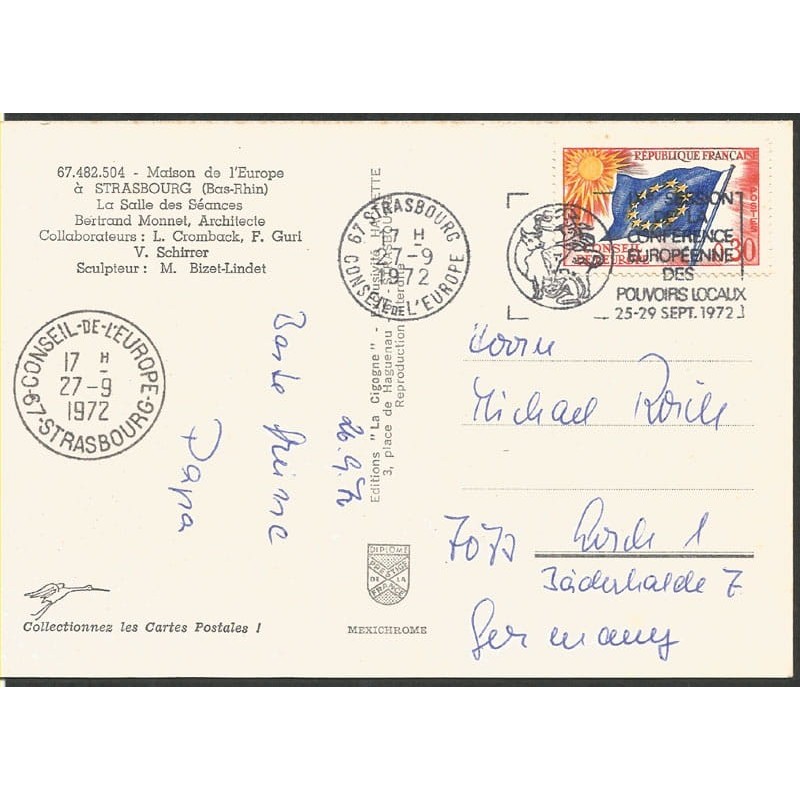 67.482.504 - Maison de l'Europe
à STRASBOURG (Bas-Rhin)
La Salle des Séances
Bertrand Monnet, Architecte
Collaborateurs : L. Cromback, F. Guri
V. Schirrer
Sculpteur : M. Bizet-Lindet
CONSEIL-DE-L'EUROPE
17 H
27-9
1972
67-STRASBOURG
Beste Grüsse
Papa
26.9.72
Collectionnez les Cartes Postales !
Editions "La Cigogne" - Exclusivité
3, place de Haguenau - STRASBOURG
Reproduction
67-STRASBOURG
17 H
27-9
1972
CONSEIL DE L'EUROPE
DIPLOME
PRESTIGE
DE LA
FRANCE
MEXICHROME
RÉPUBLIQUE FRANÇAISE
POSTES
CONSEIL
DE L'EUROPE
0,30
SESSION
DE LA
CONFÉRENCE
EUROPÉENNE
DES
POUVOIRS LOCAUX
25-29 SEPT. 1972
Herrn
Michael
7073 Lorch 1
Bäderhalde 7
Germany